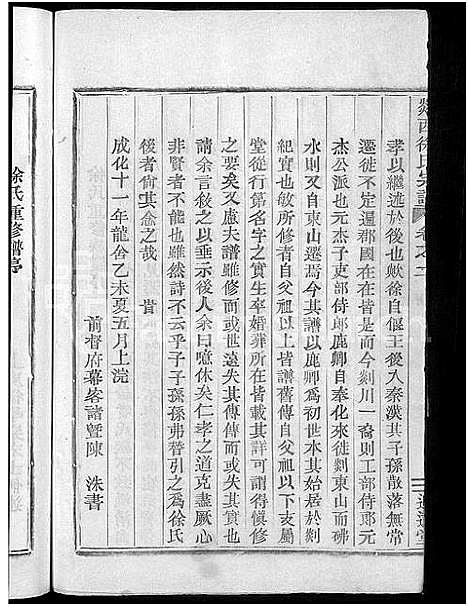 剡西徐氏宗譜 卷之一
孝以繼述於後也歟徐自偃王後入秦漢其子孫散落無常
遷徙不定是邇郡國在在皆是今剡川一裔則工部侍郎元
杰公派也元杰子吏部侍郎鹿卿自奉化來徙剡東山而磾
水則又自東山遷焉今其譜以鹿卿為初世本其始居於剡
紀實也其所修者自父祖以上皆譜舊傳自父祖以下支屬
堂從行第名字之實生卒婚葬所在皆載其詳可謂得愼修
之要矣又慮夫譜雖修而世遠失其傳傳而或失其實也
請余言敘之以垂示後人余曰噫休矣仁孝之道克盡厥心
非賢者不能也雖然詩不云乎子子孫孫弗替引之為徐氏
後者尚其念之哉 旹
成化十一年龍舍乙未夏五月上浣
前督府幕客諸暨陳 洙書
徐氏重修譜序